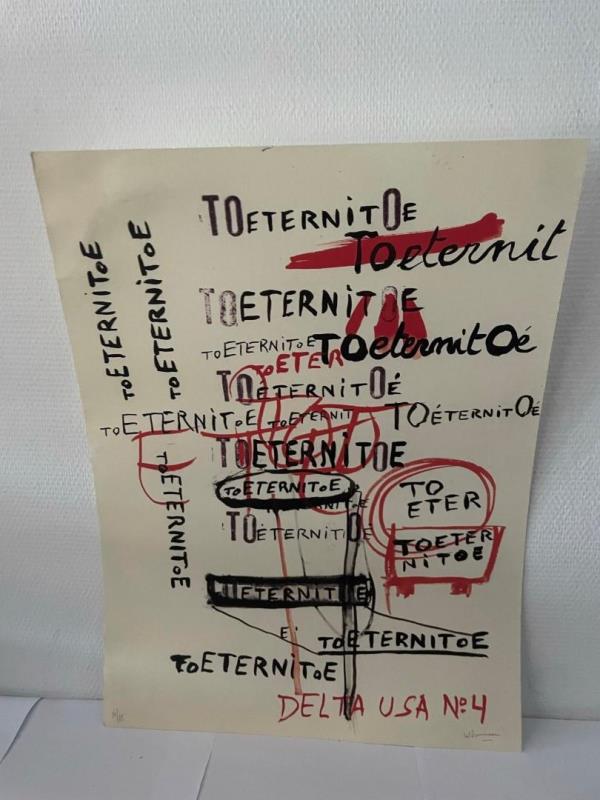 TOETERNiTOE
TOeternit
TOETERNiTOE
TOETERNiTOE
TOETERNiTOE
TOETERNiTOE
TOeternitOé
TOETER
TOÉTERNiTOÉ
TOETERNiTOE
TOETERNIT
TOÉTERNiTOé
TOETERNiTOE
TOETERNiTOE
TOETERNiTOE
TO
ETER
TOÉTERNiTOÉ
TOETER
NiTOE
ETERNIT E
E'
TOETERNiTOE
TOETERNiTOE
DELTA USA No4